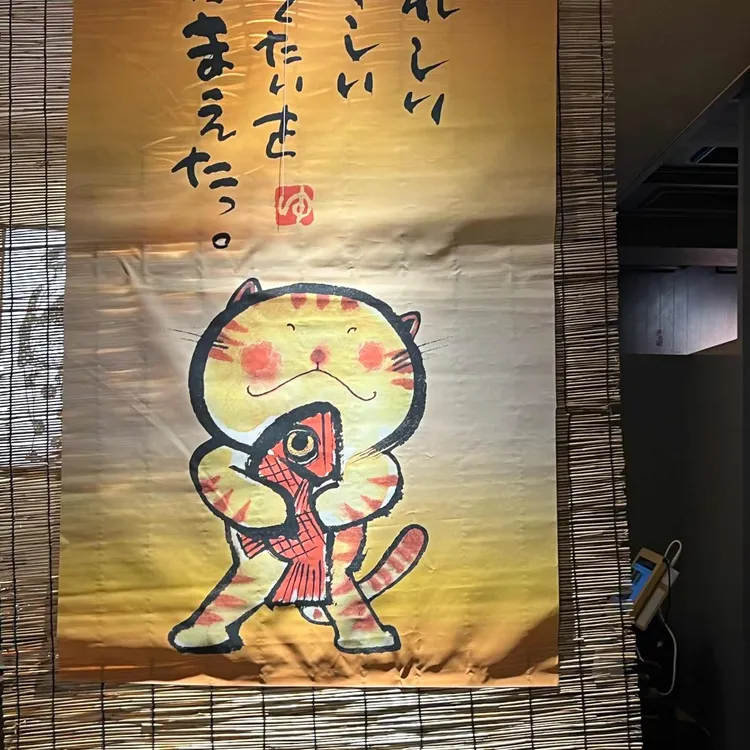 れしい
しい
たいを
まえたっ。
ゆ